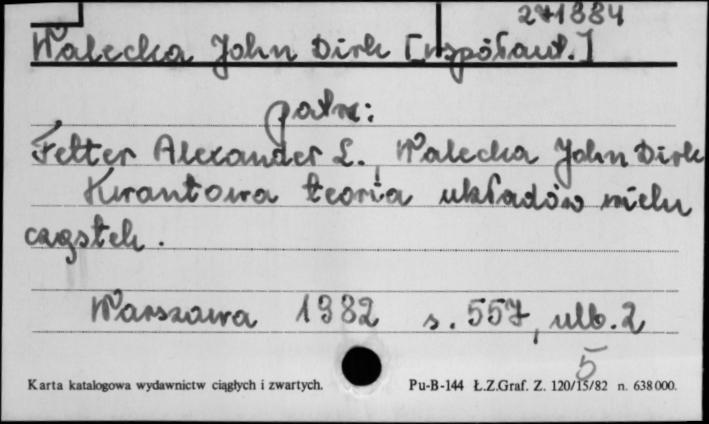 271884
Walecka John Dirk [współaut.]
patrz:
Fetter Alexander L., Walecka John Dirk
Kwantowa teoria układów wielu
cząstek.
Warszawa 1982 s. 557, ulb. 2
5
Karta katalogowa wydawnictw ciągłych i zwartych. Pu-B-144 Ł.Z.Graf. Z. 120/15/82 n. 638000.